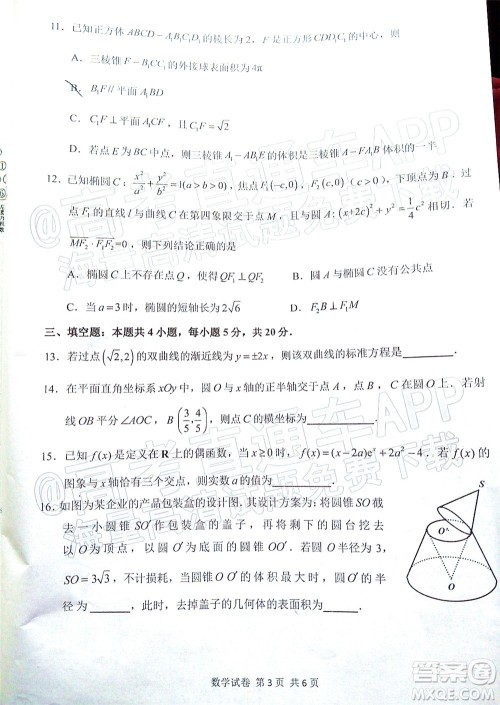 11. 已知正方体 ABCD－A₁B₁C₁D₁的棱长为2，F 是正方形 CDD₁C₁的中心，则
A. 三棱锥 A₁－B₁CC₁的外接球表面积为 4π
B. B₁F // 平面 A₁BD
C. C₁F⊥平面 A₁，且C₁F=√2
D. 若点 E 为 BC 中点，则三棱锥 A₁－AB₁E 的体积是三棱锥 A－FA₁B₁体积的一半
12. 已知椭圆 C：x²/a²+y²/b²=1(a>b>0)，焦点 F₁(−c,0)，F₂(c,0)，下顶点为 B．过
点 F₁ 的直线 l 与曲线 C 在第四象限交于点 M，圆 A：(x+2c)²+y²=¼c²，
MF₂·F₁F₂=0，则下列结论正确的是
A. 椭圆 C 上不存在点 Q，使得 QF₁⊥QF₂
B. 圆 A 与椭圆 C 没有公共点
C. 当 a=3 时，椭圆的短轴长为 2√6
D. F₂B⊥F₁B
三、填空题：本题共 4 小题，每小题 5 分，共 20 分．
13. 若过点(√2,2)的双曲线的渐近线为 y=±2x，则该双曲线的标准方程是
14. 在平面直角坐标系 xOy 中，圆 O 与 x 轴的正半轴交于点 A，点 B，C 在圆 O 上，若射
线 OB 平分∠AOC，B(3/5,4/5)，则点 C 的横坐标为
15. 已知 f(x) 是定义在 R 上的偶函数，当 x≥0 时，f(x)=(x−2a)eˣ+2a²−4．若 f(x) 的
图象与 x 轴恰有三个交点，则实数 a 的值为
16. 如图为某企业的产品包装盒的设计图，其设计方案为：将圆锥 SO 截
去一小圆锥 SO′作包装盒的盖子，再将剩下的圆台挖去以
O 为顶点，以圆 O′为底面的圆锥 OO′．若圆 O 半径为 3，
SO=3√3，不计损耗，当圆锥 OO′的体积最大时，圆 O′的半径
为，此时，去掉盖子的几何体的表面积为
S
O′
O
数学试卷 第 3 页 共 6 页